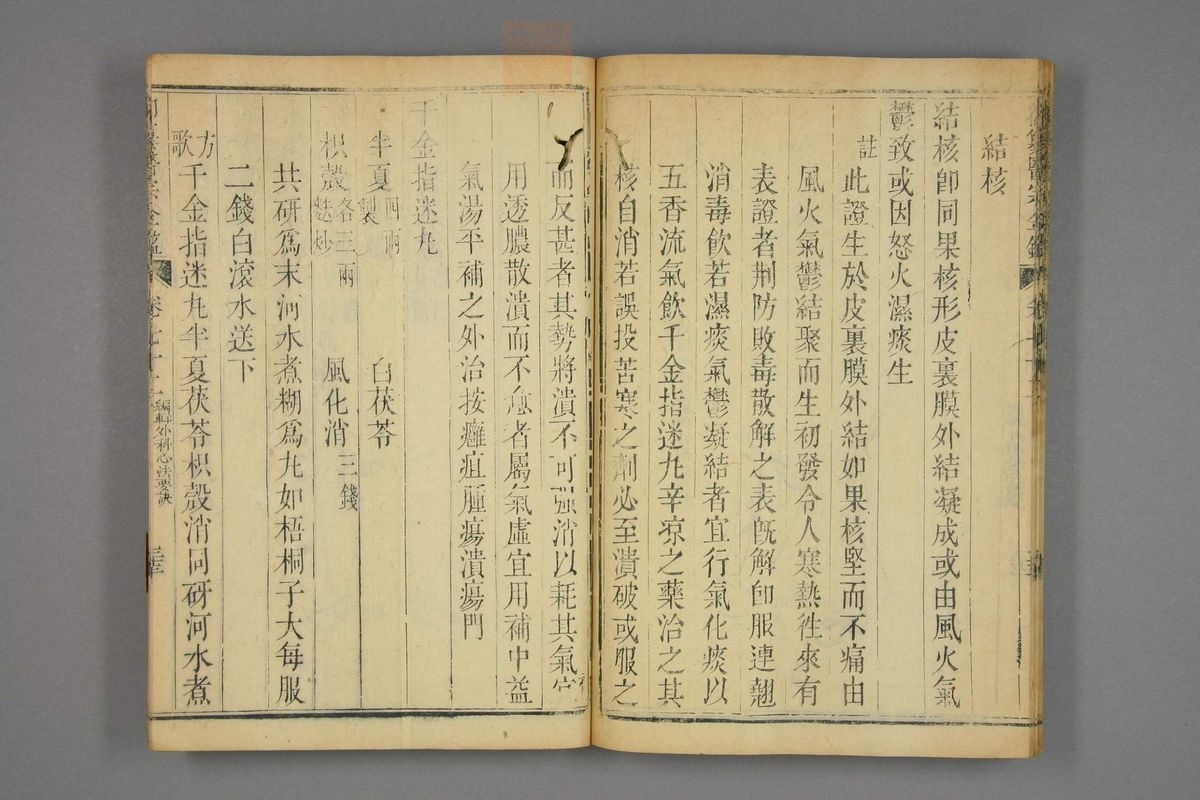 結核
結核卽同果核形皮裏膜外結凝成或由風火氣
鬱致或因怒火濕痰生
註
此證生於皮裏膜外結如果核堅而不痛由
風火氣鬱結聚而生初發令人寒熱徃來有
表證者荆防敗毒散解之表旣解卽服連翹
消毒飮若濕痰氣鬱凝結者宜行氣化痰以
五香流氣飮千金指迷丸辛凉之藥治之其
核自消若誤投苦寒之劑必至潰破或服之
而反甚者其勢將潰不可强消以耗其氣宜
用透膿散潰而不愈者屬氣虛宜用補中益
氣湯平補之外治按癰疽腫瘍潰瘍門
千金指迷丸
半夏 四兩 製 白茯苓
枳殼 各三兩 麩炒 風化消 三錢
共研爲末河水煮糊爲丸如梧桐子大每服
二錢白滾水送下
方歌
千金指迷丸半夏茯苓枳殼消同硏河水煮
編輯外科心法要訣